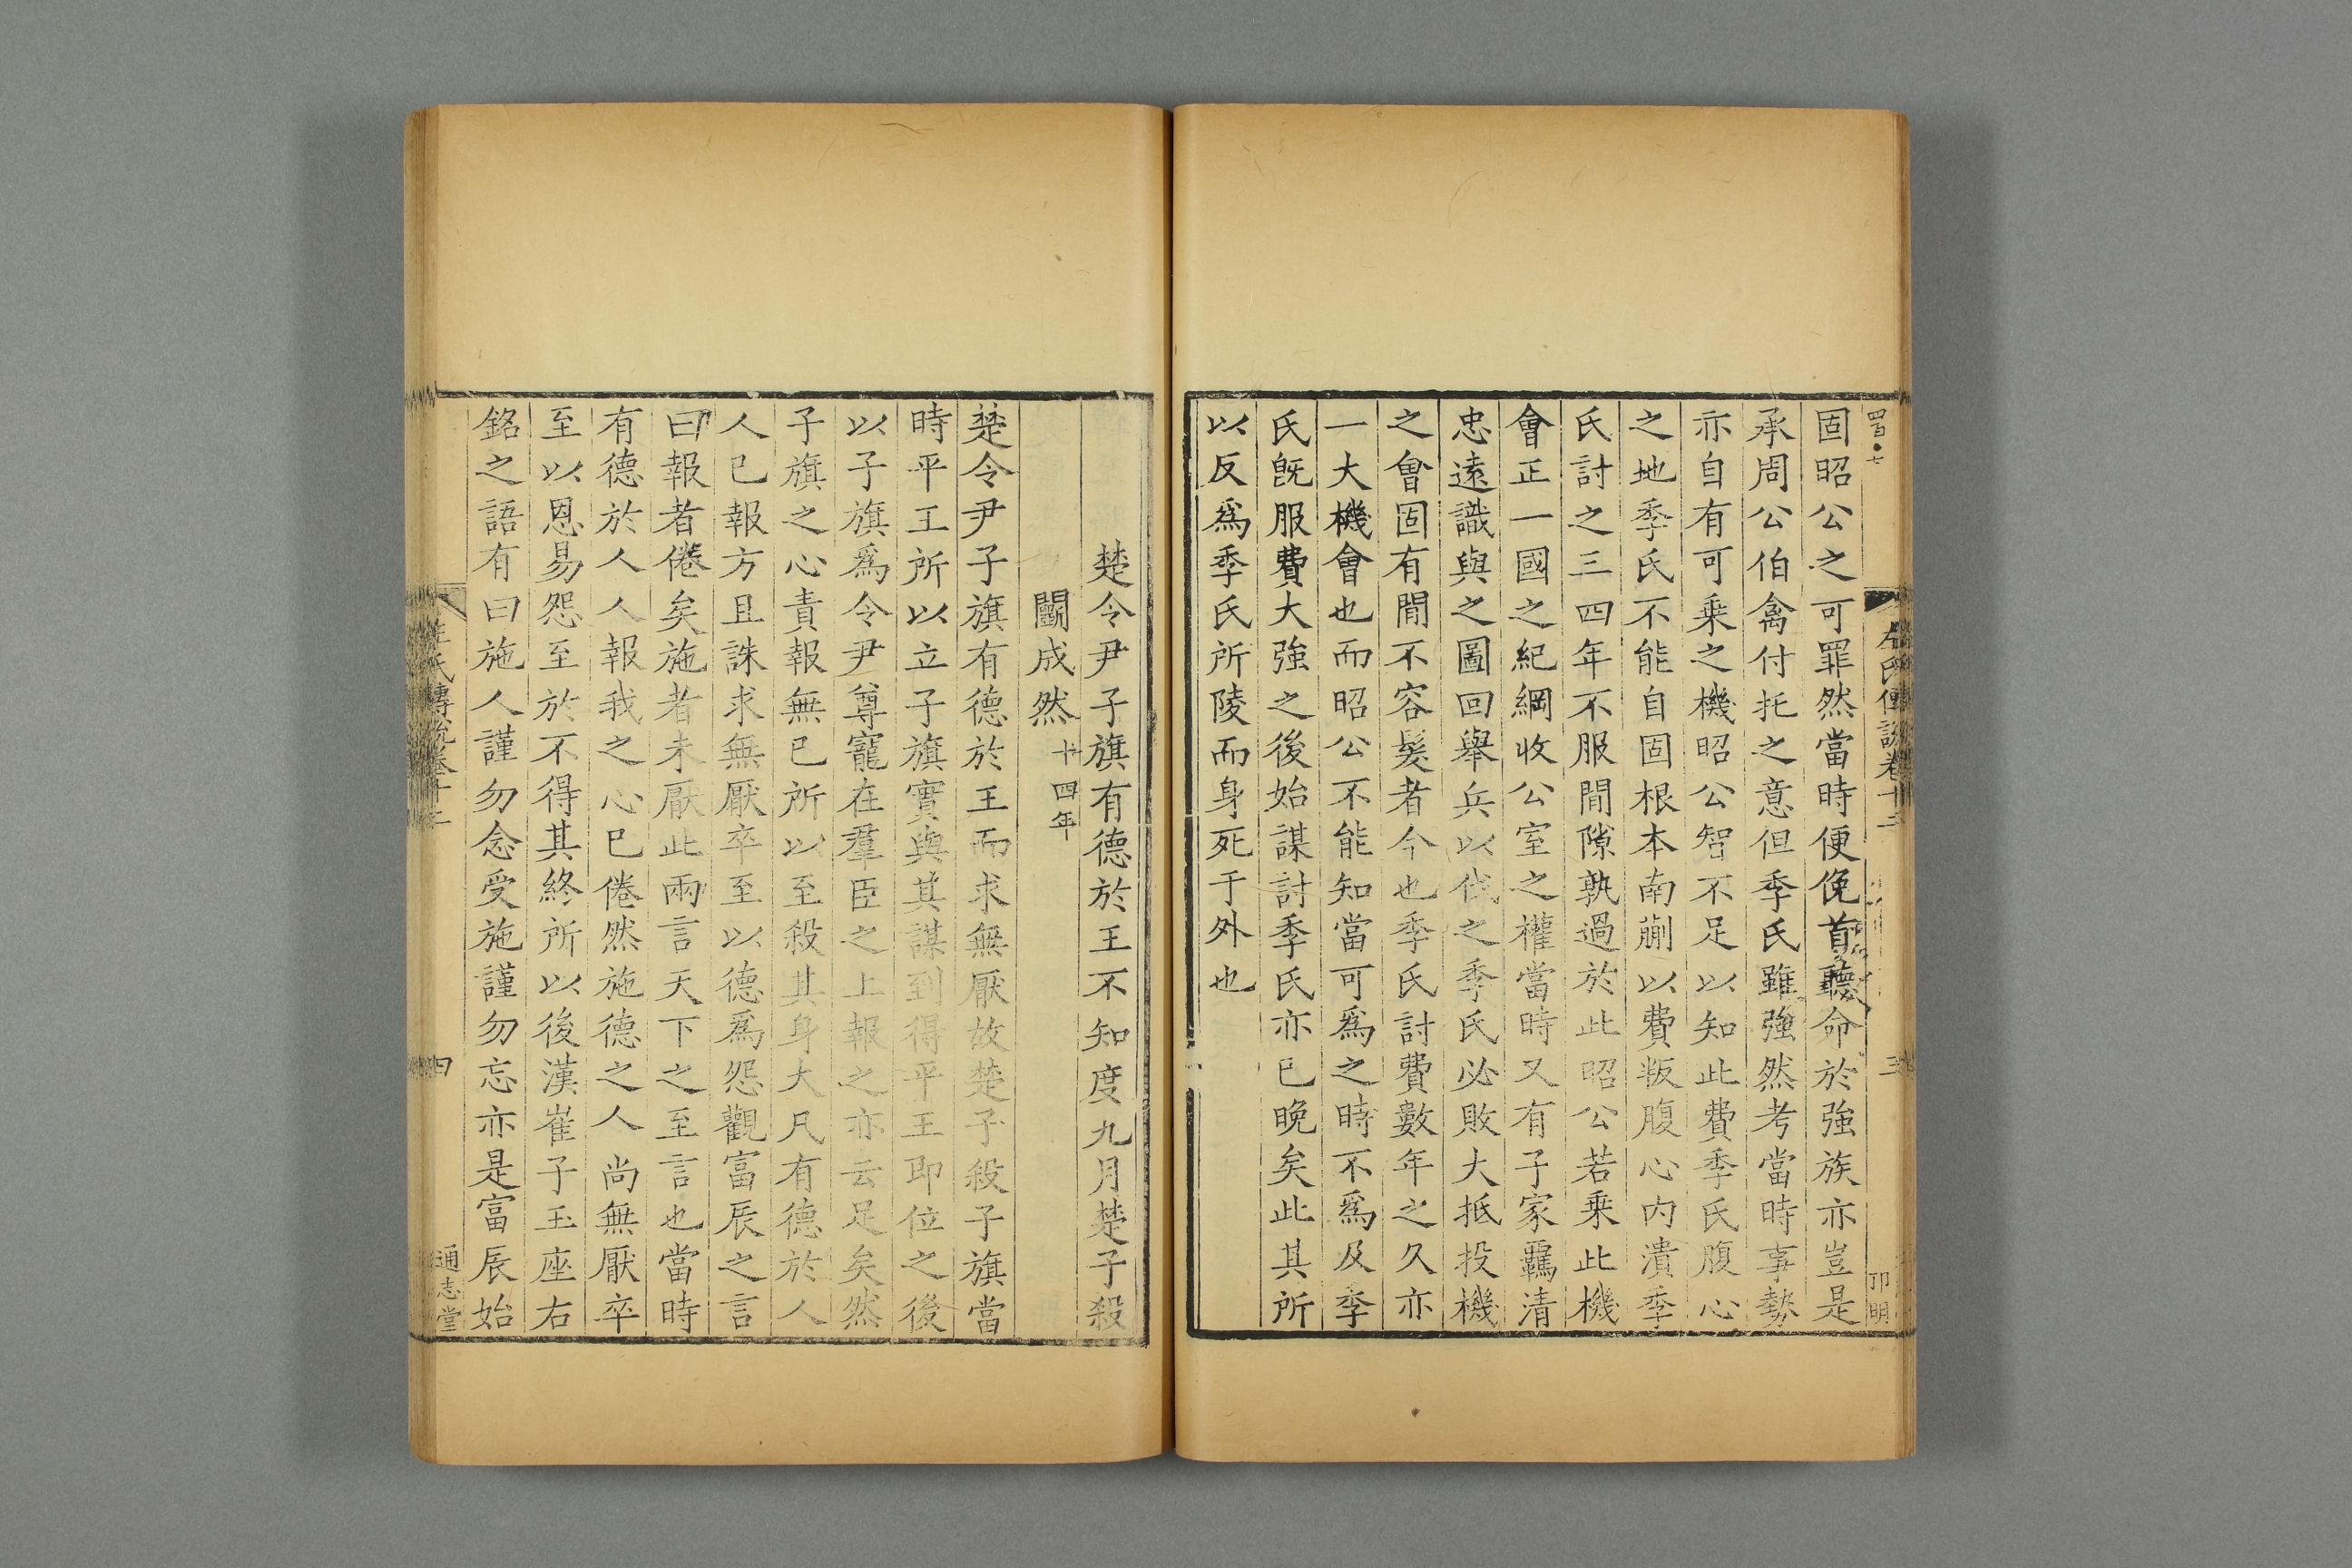 左氏傳説卷十二
三
固昭公之可罪然當時便俛首聽命於強族亦豈是
承周公伯禽付托之意但季氏雖強然考當時事勢
亦自有可乗之機昭公智不足以知此費季氏腹心
之地季氏不能自固根本南蒯以費叛腹心内潰季
氏討之三四年不服間隙孰過於此昭公若乗此機
會正一國之紀綱收公室之權當時又有子家羈清
忠遠識與之圖回舉兵以伐之季氏必敗大抵投機
之會固有間不容髮者今也季氏討費數年之久亦
一大機會也而昭公不能知當可爲之時不爲及季
氏既服費大強之後始謀討季氏亦已晩矣此其所
以反爲季氏所陵而身死于外也
楚令尹子旗有德於王不知度九月楚子殺
鬭成然十四年
楚令尹子旗有德於王而求無厭故楚子殺子旗當
時平王所以立子旗實與其謀到得平王即位之後
以子旗爲令尹尊寵在羣臣之上報之亦云足矣然
子旗之心責報無已所以至殺其身大凡有德於人
人已報方且誅求無厭卒至以德爲怨觀富辰之言
曰報者倦矣施者未厭此兩言天下之至言也當時
有德於人人報我之心已倦然施德之人尚無厭卒
至以恩易怨至於不得其終所以後漢崔子玉座右
銘之語有曰施人謹勿念受施謹勿忘亦是富辰始
左氏傳説卷十二
四
通志堂